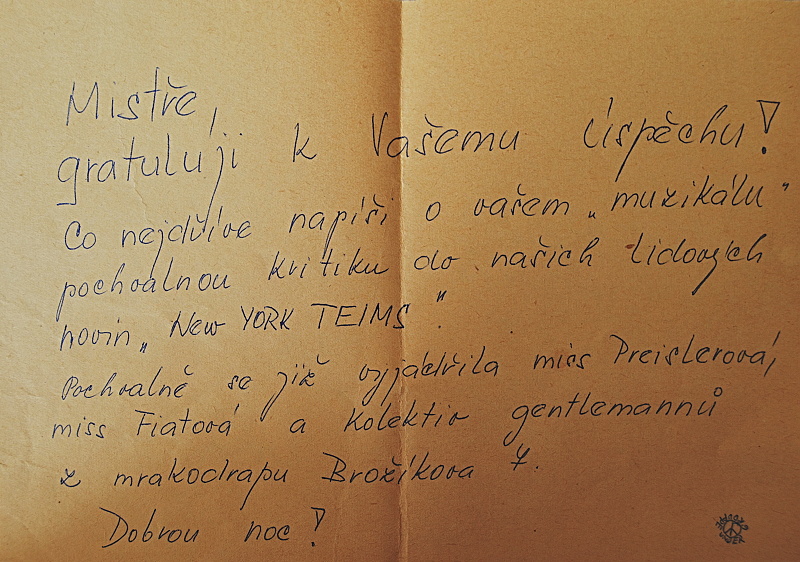 Mistře,
gratuluji k Vašemu úspěchu!
Co nejdříve napíši o vašem „muzikálu"
pochvalnou kritiku do našich lidových
novin „New YORK TEIMS".
Pochvalně se již vyjádřila miss Preislerová,
miss Fiatová a kolektiv gentlemannů
z mrakodrapu Brožíkova 7.
Dobrou noc!